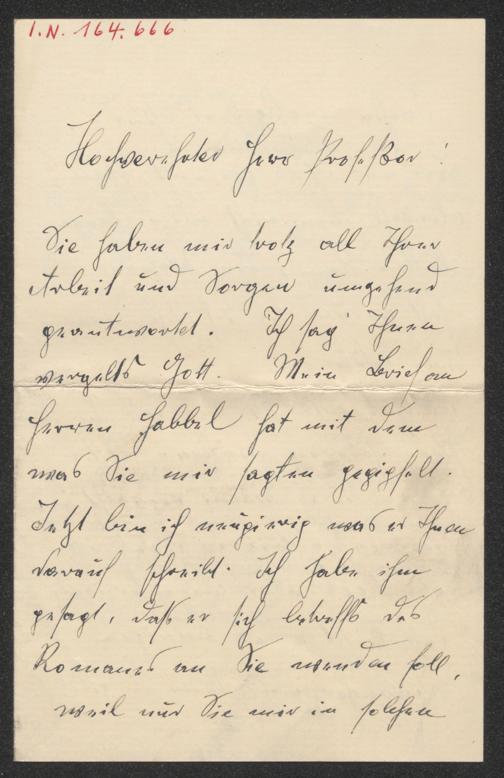 I.N. 164.666
Hochverehrter Herr Professor!
Sie haben mir trotz all Ihrer
Arbeit und Sorgen umgehend
geantwortet. Ich sag' Ihnen
vergelts Gott. Mein Brief an
Herren Habbel hat mit dem
was Sie mir sagten gegipfelt.
Jetzt bin ich neugierig was er Ihnen
darauf schreibt. Ich habe ihm
gesagt, daß er sich betreffs des
Romanes an Sie wenden soll,
weil nur Sie mir in solchen